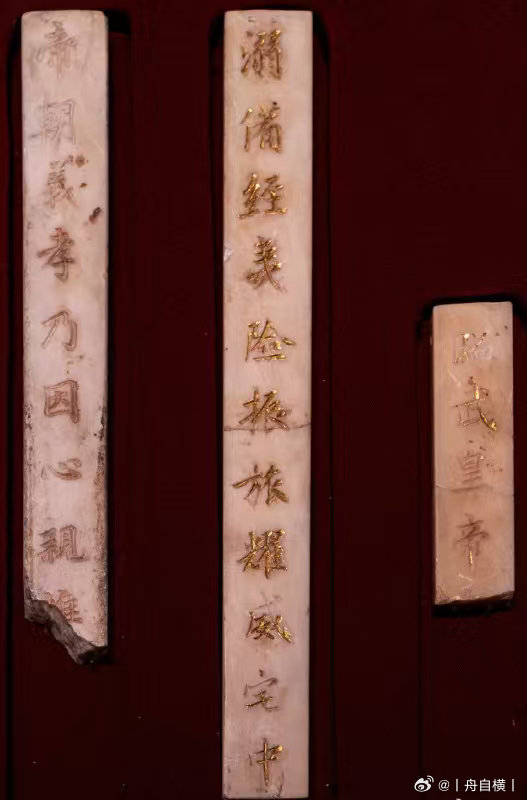 昭武皇帝
溺備經夷險振旅耀威宅中
帝朝義孝乃因心親惟
@丨舟自横丨